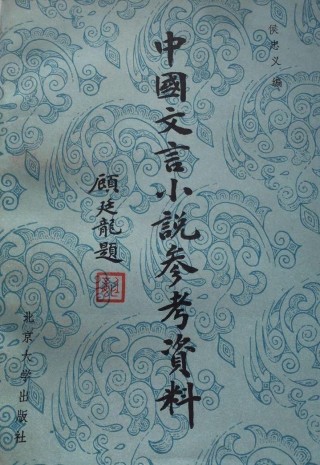 侯忠义 编
中國文言小說參考資料
顧廷龍題
北京大学出版社